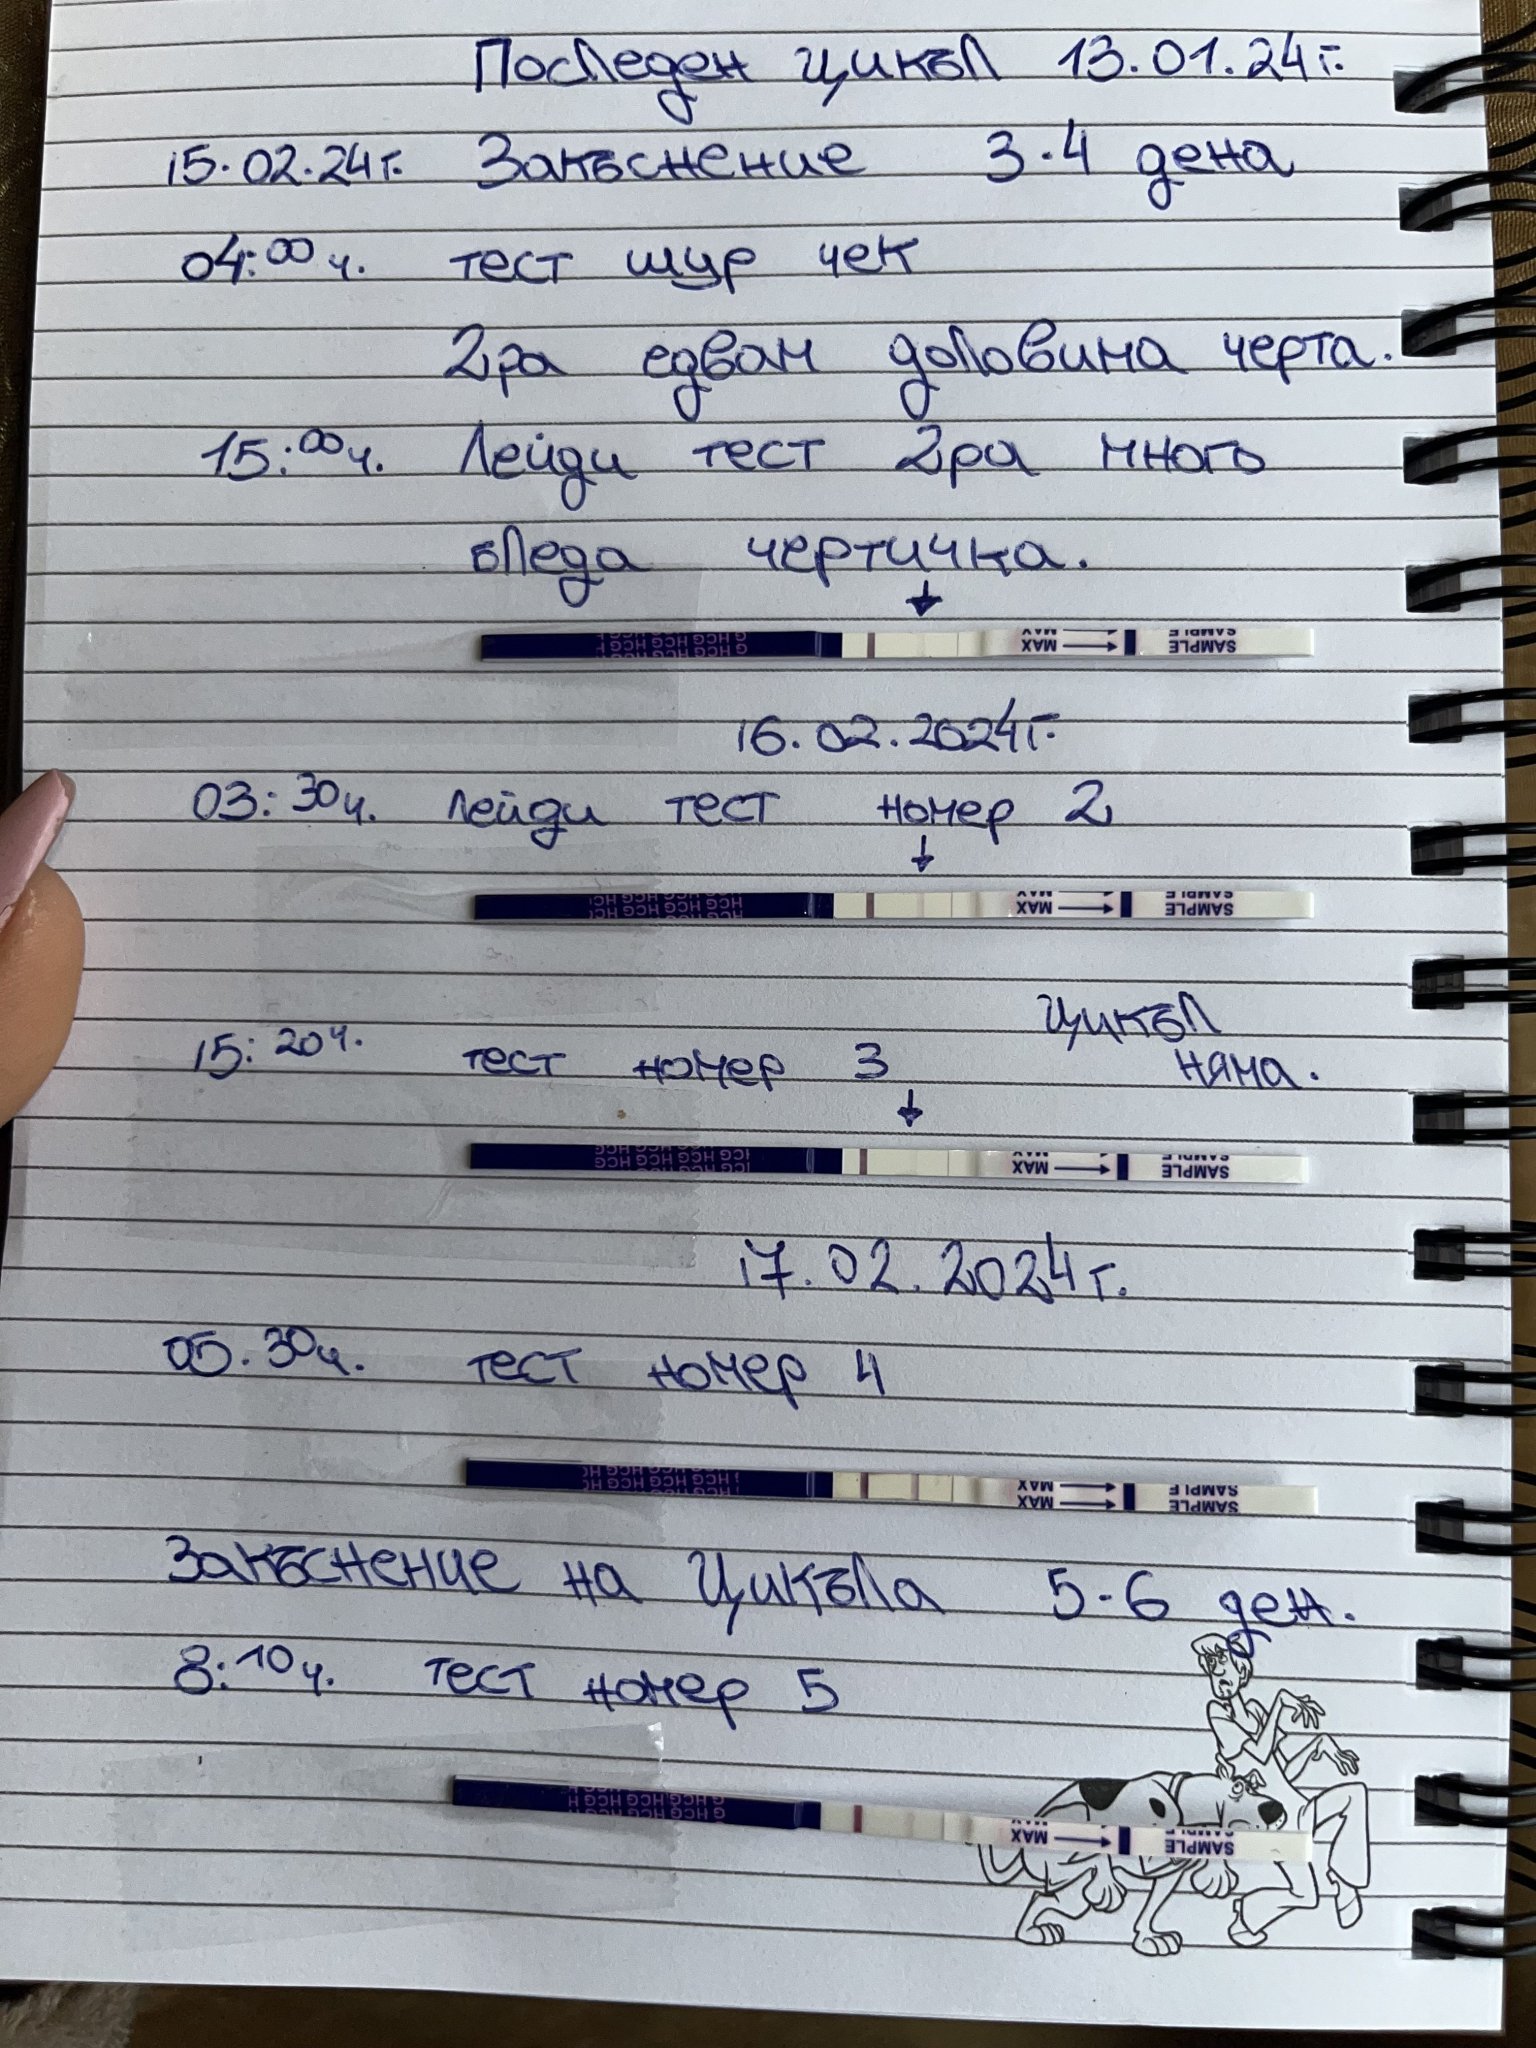 Последен цикъл 13.01.24г.
15.02.24г. Закъснение 3-4 дена
04:00ч. тест шур чек
2ра едвам доловима черта.
15:00ч. Лейди тест 2ра много
бледа чертичка.
G HCG HCG HCG MAX SAMPLE
16.02.2024г.
03:30ч. Лейди тест номер 2
HCG HCG HCG MAX SAMPLE
Цикъл
15:20ч. тест номер 3 няма.
HCG HCG HCG MAX SAMPLE
17.02.2024г.
05.30ч. тест номер 4
HCG HCG HCG MAX SAMPLE
MAX SAMPLE
Закъснение на Цикъла 5-6 ден.
8:10ч. тест номер 5
G HCG HCG HCG H MAX SAMPLE